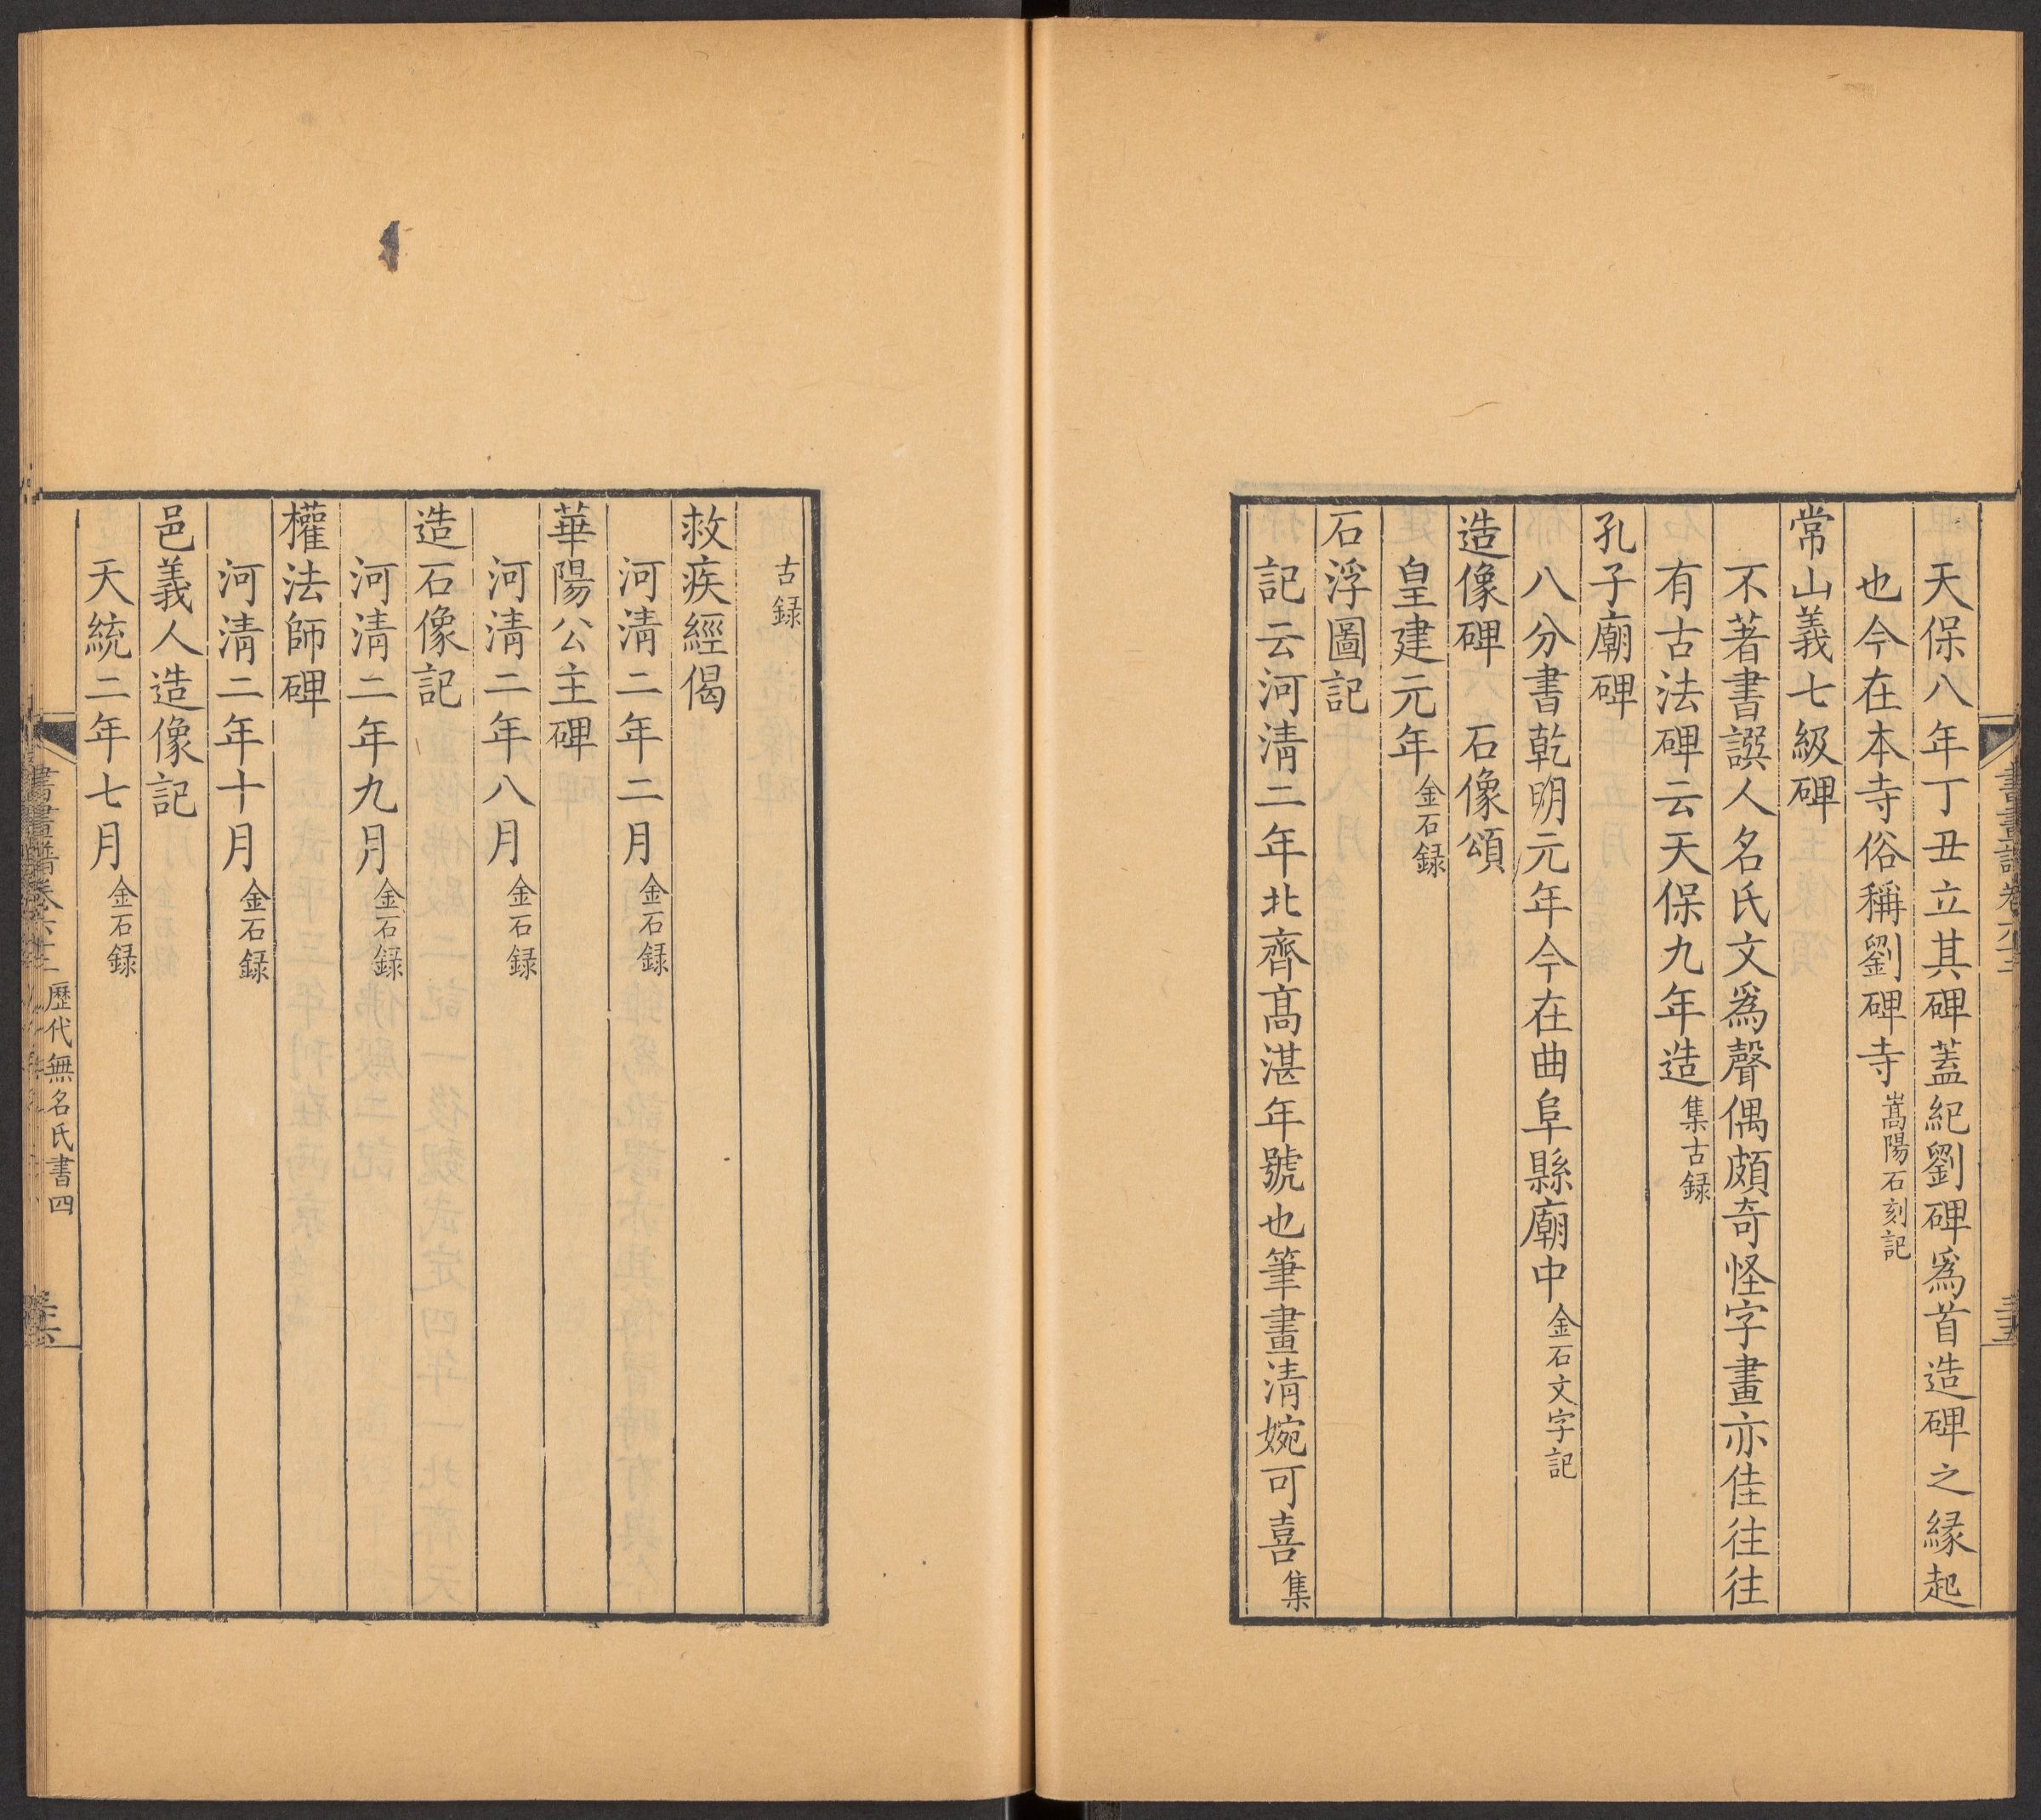 天保八年丁丑立其碑蓋紀劉碑爲首造碑之緣起
也今在本寺俗稱劉碑寺嵩陽石刻記
常山義七級碑
不著書譔人名氏文爲聲偶頗奇怪字畫亦佳往往
有古法碑云天保九年造集古録
孔子廟碑
八分書乾明元年今在曲阜縣廟中金石文字記
造像碑　石像頌
皇建元年金石録
石浮圖記
記云河清二年北齊高湛年號也筆畫清婉可喜集
古録
救疾經偈
河清二年二月金石録
華陽公主碑
河清二年八月金石録
造石像記
河清二年九月金石録
權法師碑
河清二年十月金石録
邑義人造像記
天統二年七月金石録
歷代無名氏書四